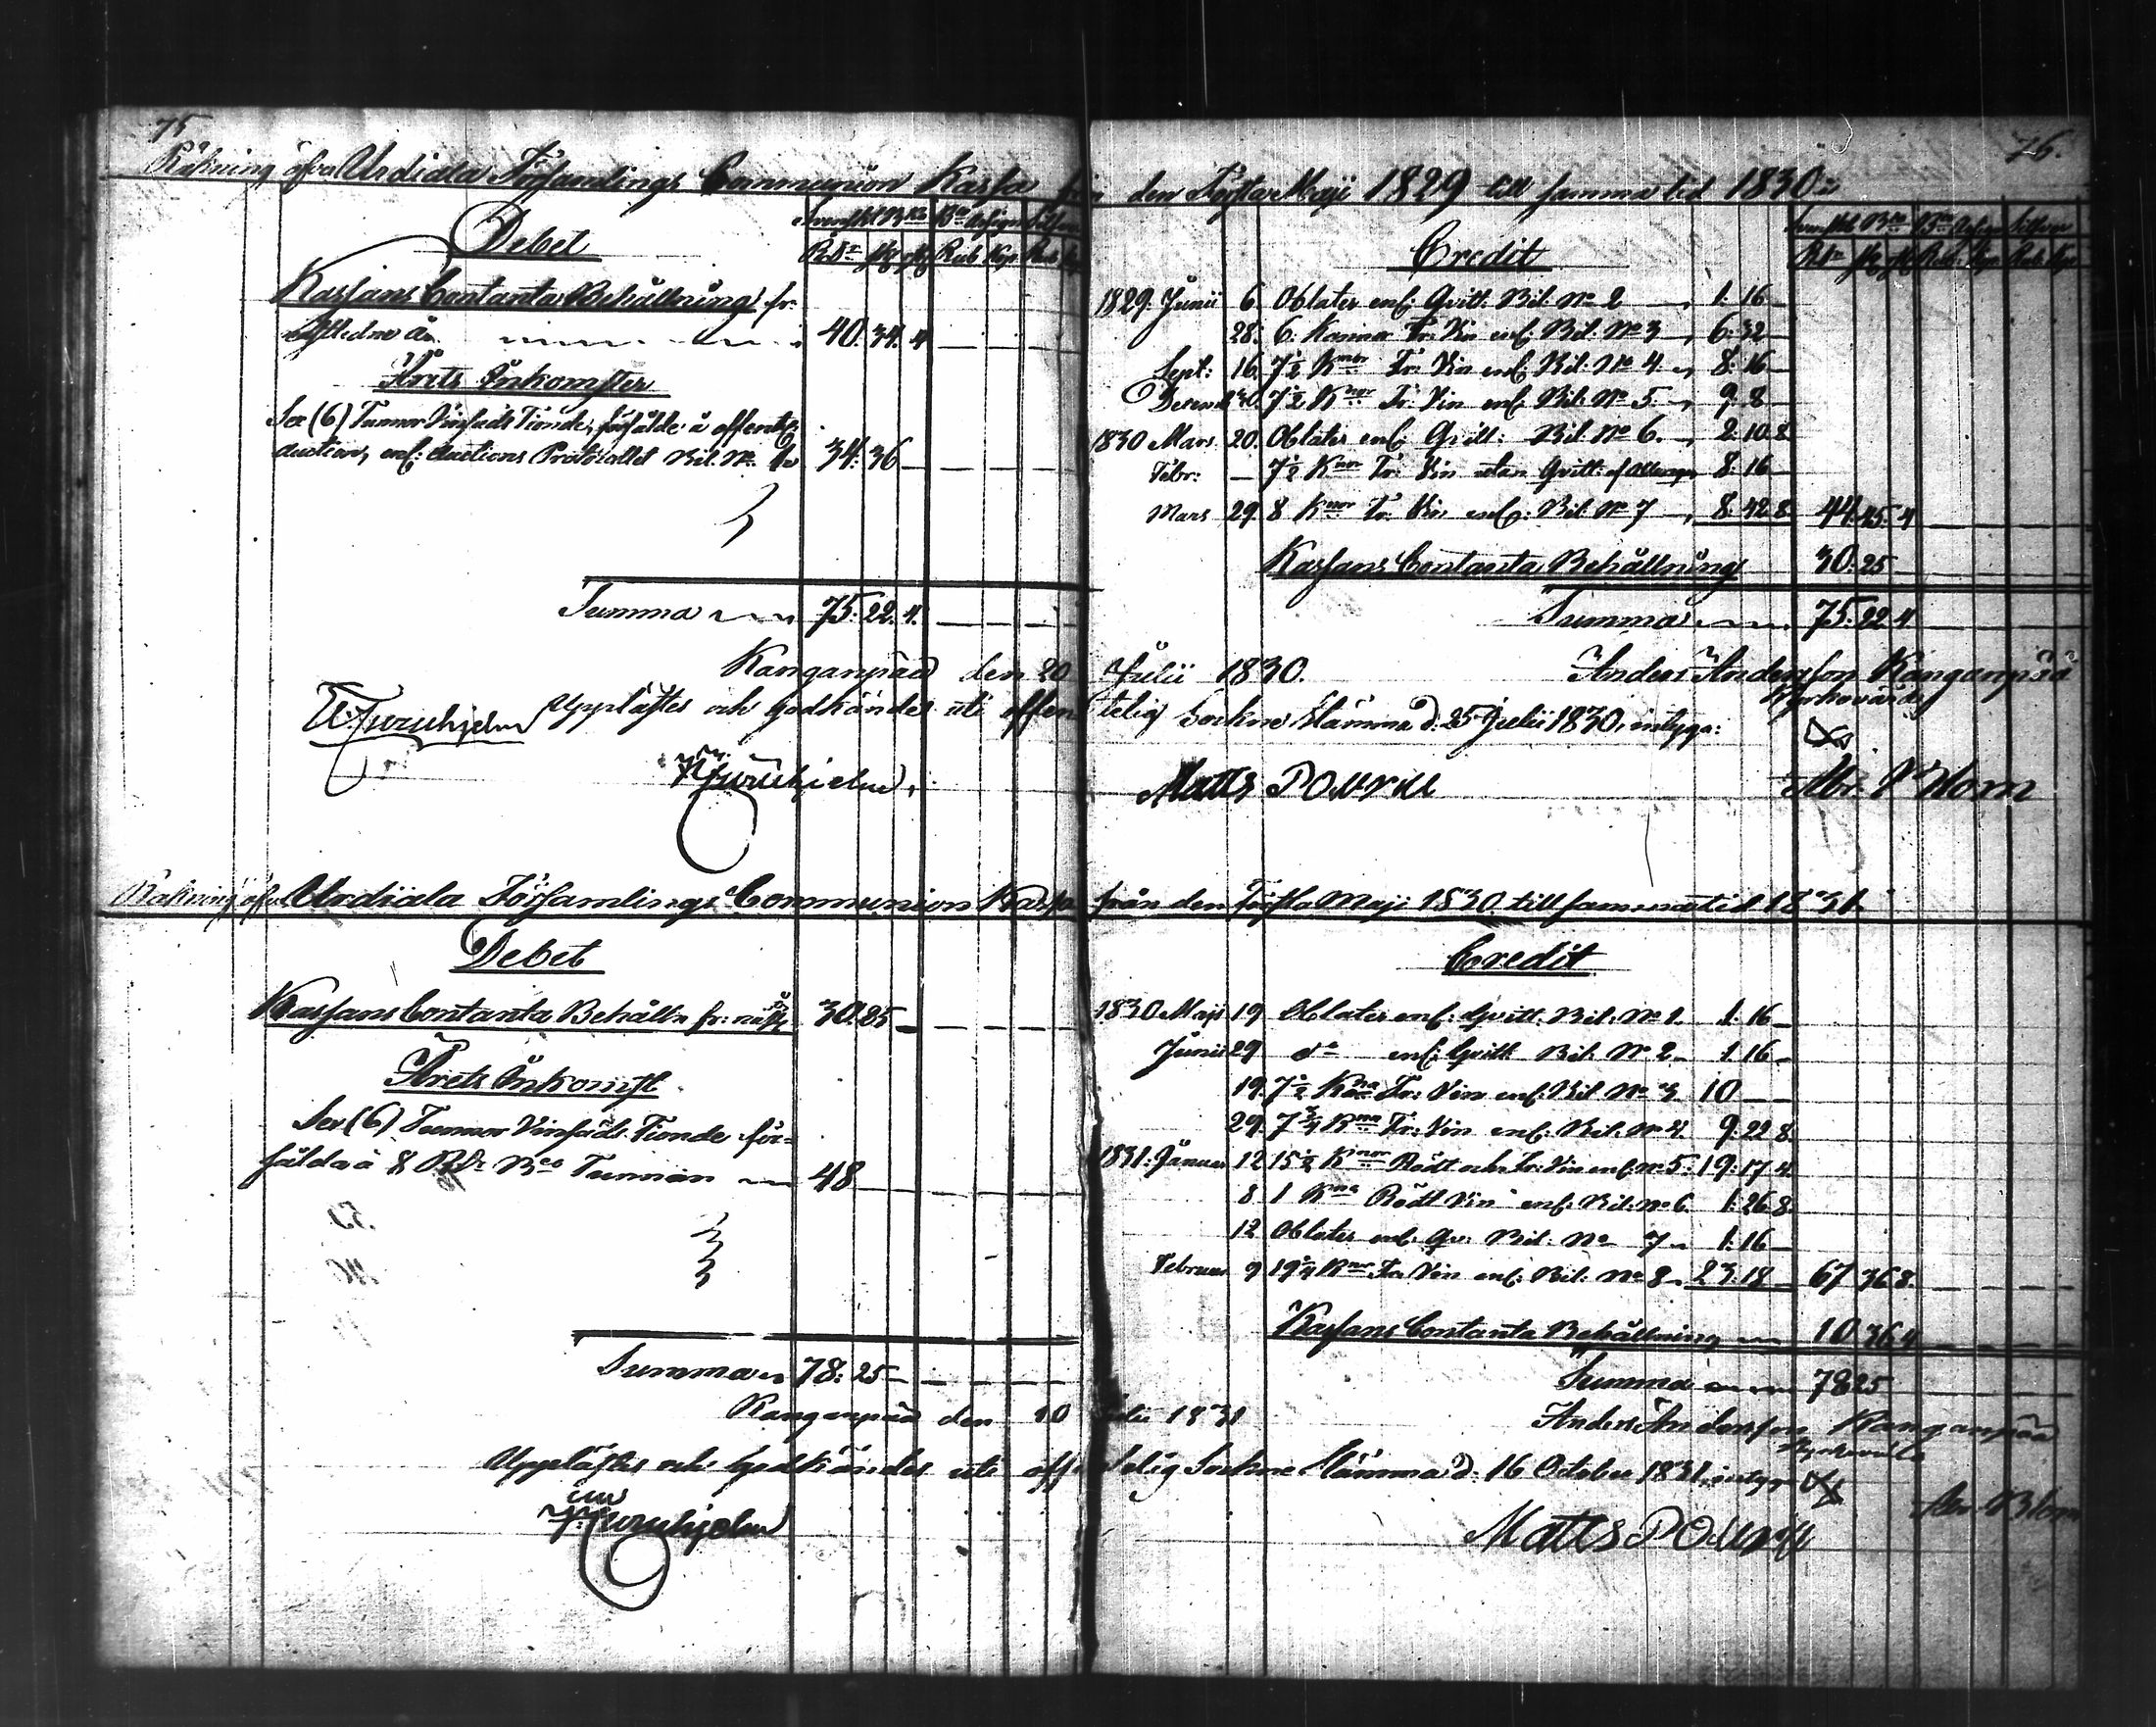 75
Räkning öfver Urdiala Församlings Communion Kassa från den Första Maji 1829 till samma tid 1830
76.
Debet
R:dr
Rub Kop
Rub
Kassans Contanta Behållning fr:
40. 34. 4
Årets Inkomster
Sex (6) Tunnor Vinsäds Tionde, försålde å offentlig
auction, enl: Auctions Protocollet Bil. No 1. 34: 36
Summa 75: 22. 4.
Credit
1829. Junii 6. Oblater enl: Qvitt. Bil. No 2 1: 16
28. 6. Kannor Fr: Vin enl: Bil. No 3 6: 32
Sept: 16. 7½ Knor Fr: Vin enl: Bil. No 4. 8: 16
Decemb 30. 7½ Knor Fr: Vin enl: Bil. No 5. 9. 8
1830 Mars 20. Oblater enl: Qvitt: Bil. No 6. 2: 10. 8
Febr: 7½ Knor Fr: Vin utan Qvitt: 8: 16
Mars 29. 8 Knor Fr: Vin enl: Bil. No 7 8. 42. 8 44. 45. 4
Kassans Contanta Behållning 30: 25
Summa 75: 22. 4
Kanganpää den 20 Julii 1830. Anders Andersson Kanganpää
Kyrkovärd
Upplästes och Godkändes uti offentelig Sockne Stämma d: 25 Julii 1830, intyga:
Furuhjelm
Furuhjelm
Matts
Räkning öfver Urdiala Församlings Communion Kassa från den Första Maji 1830 till samma tid 1831.
Debet
Kassans Contanta Behålln fr: 30. 25
Årets Inkomst
Sex (6) Tunnor Vinsäds Tionde för=
sålda à 8 Rdr Bco Tunnan 48
Summa 78: 25
Credit
1830 Maji 19 Oblater enl: Qvitt. Bil. No 1. 1: 16
Junii 29 do enl: Qvitt Bil. No 2 1. 16
19. 7½ Kna Fr: Vin enl: Bil No 3. 10
29. 7¾ Kna Fr: Vin enl: Bil. No 4. 9: 22 8.
1831. Januar 12 15½ Knor Rödt och Fr: Vin enl. No 5. 19: 17. 4.
8. 1 Kna Rödt Vin enl. Bil. No 6 1: 26. 8.
12 Oblater enl. Qv: Bil. No 7 1: 16
Februar 9 19¼ Knor Fr Vin enl: Bil. No 8. 23. 18 67 36 8.
Kassans Contanta Behållning 10 36 4
Summa 78 25
Kanganpää den 10 Julii 1831 Anders Andersson Kanganpää
Kyrkovärd
Upplästes och Godkändes uti offentelig Sockne Stämma d. 16 October 1831, intyga
Furuhjelm
Matts